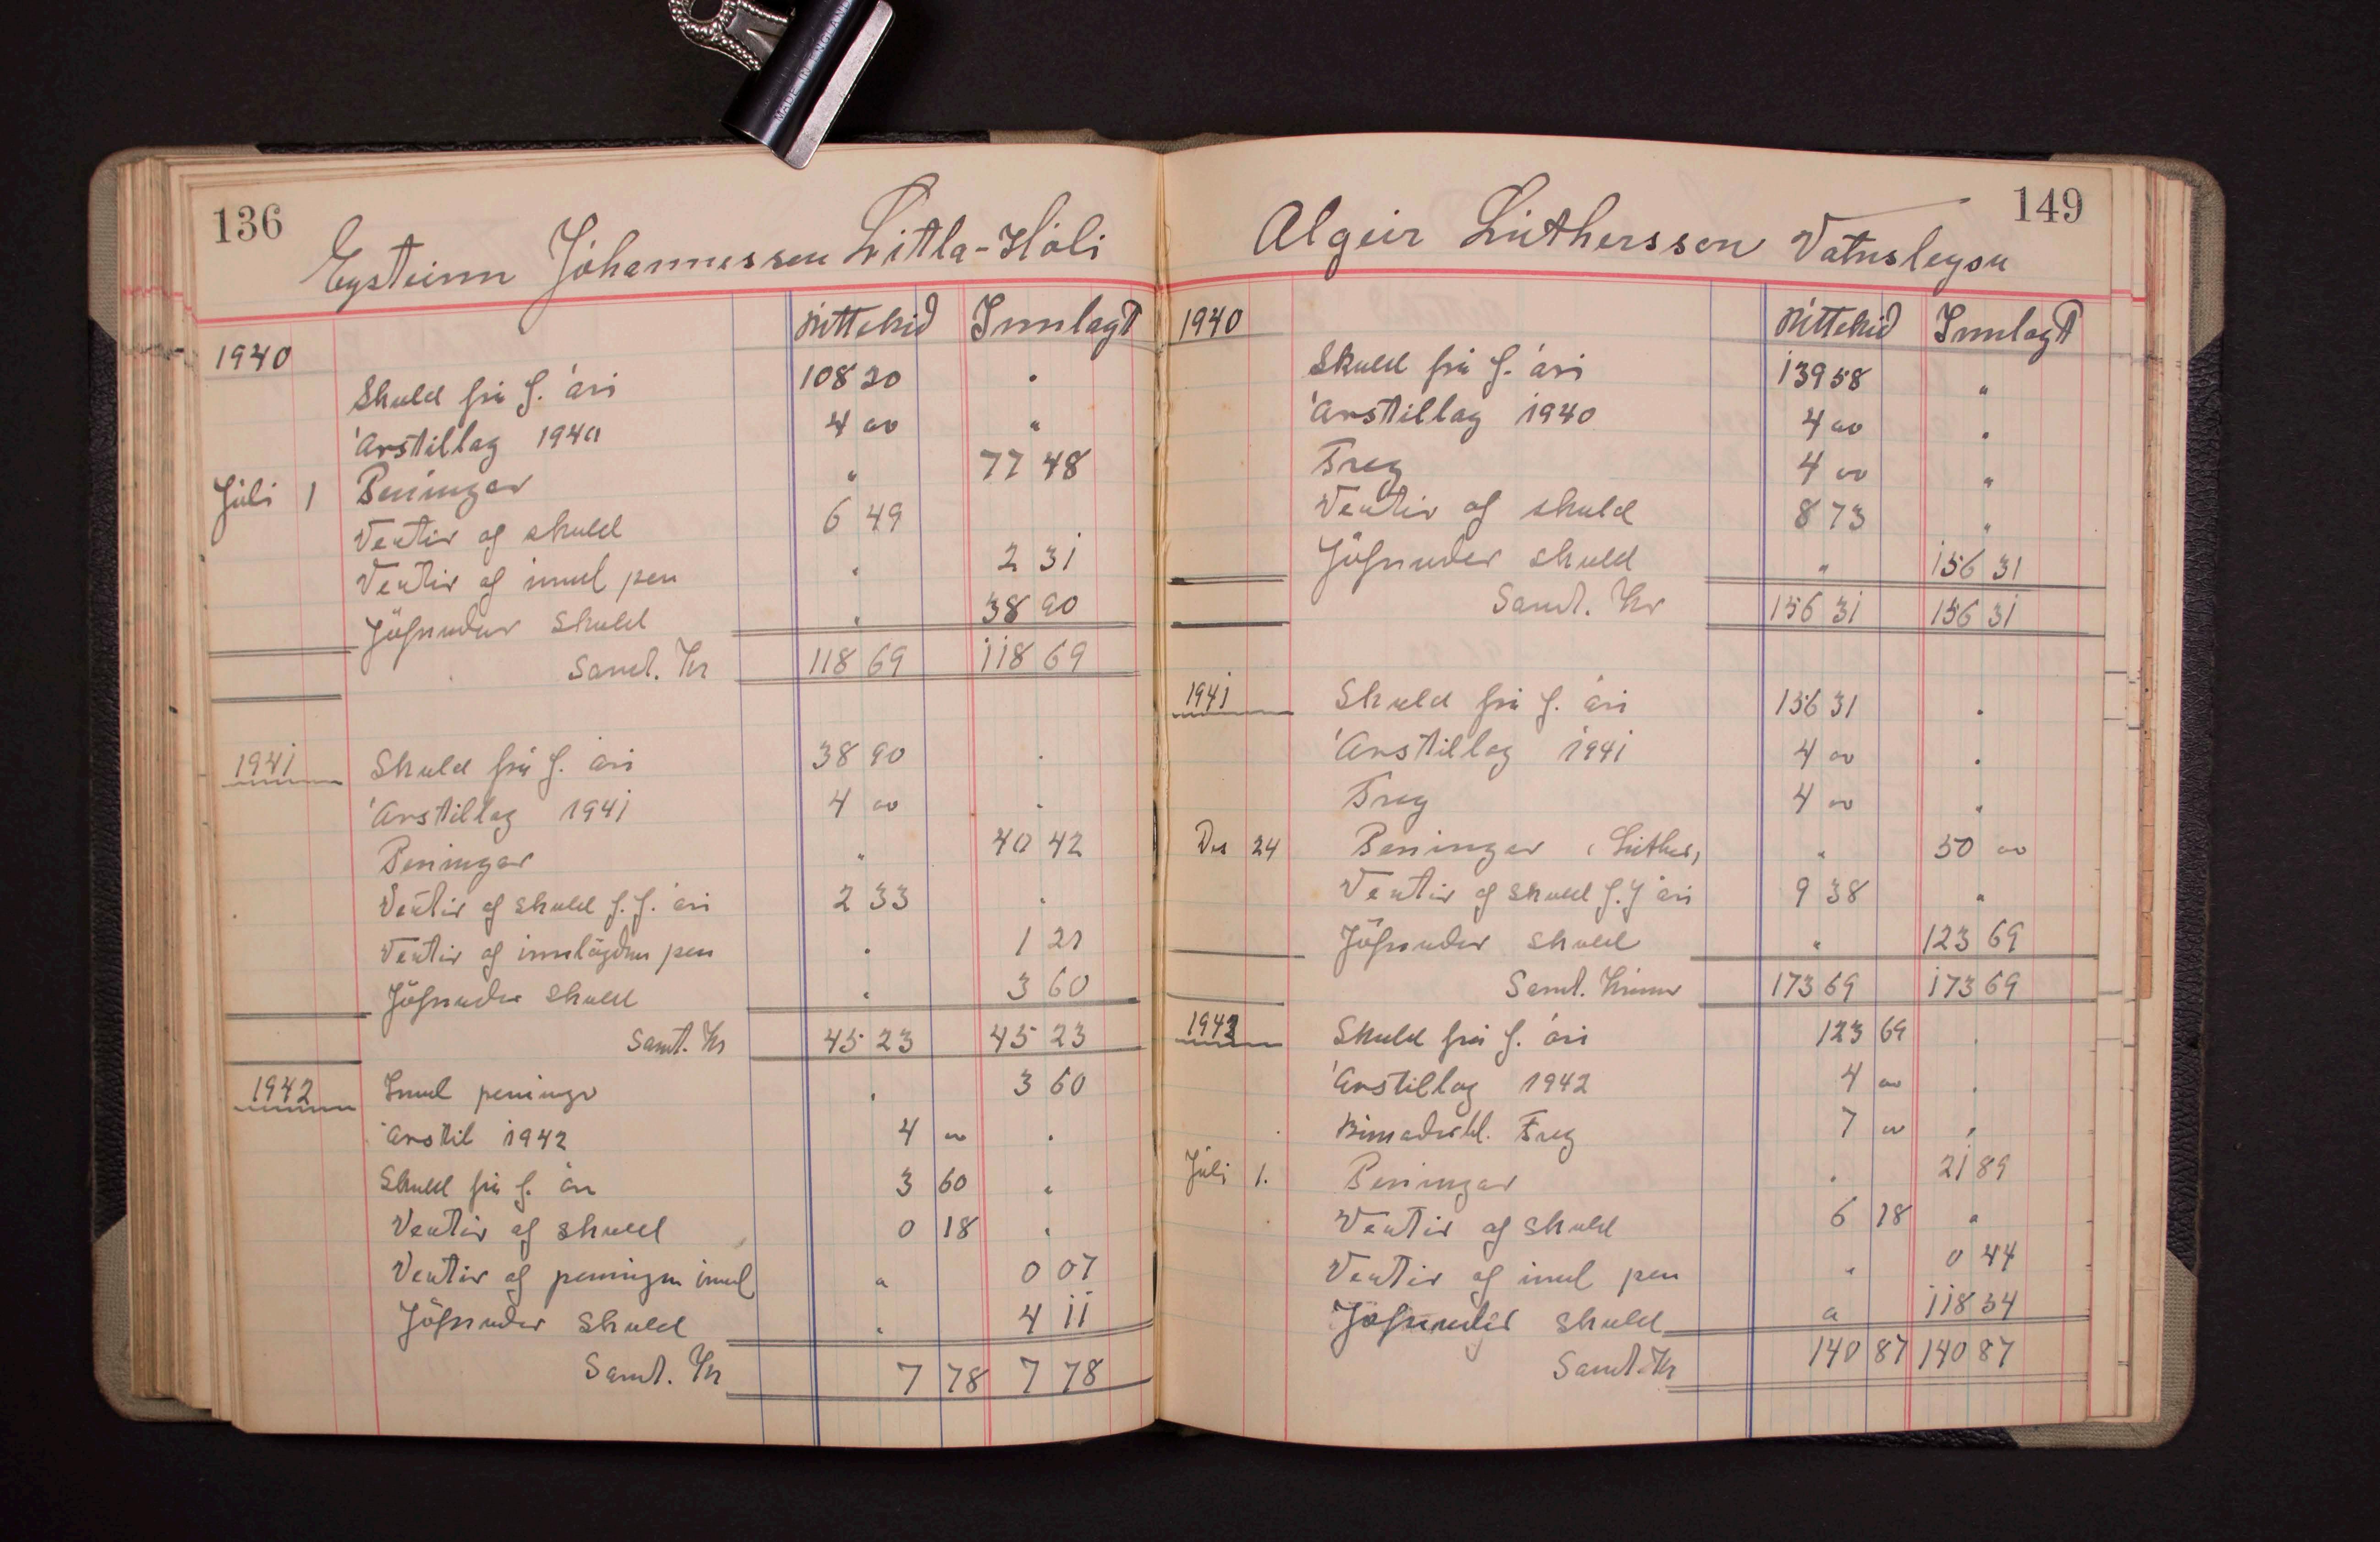 MADE IN ENGLAND
136
Eysteinn Jóhannesson Litla-Hóli
Úttekið Innlagt
1940
Skuld frá f. ári 108 20 "
Árstillag 1940 4 00 "
Júlí 1 Peningar " 77 48
Vextir af skuld 6 49
Vextir af innl pen " 2 31
Jöfnuður skuld " 38 90
Samt. Kr 118 69 118 69
1941 Skuld frá f. ári 38 90 "
Árstillag 1941 4 00 "
Peningar " 40 42
Vextir af skuld f. f. ári 2 33 "
Vextir af innlögðum pen " 1 21
Jöfnuður skuld " 3 60
Samt. Kr 45 23 45 23
1942 Innl peningr " 3 60
Árstil 1942 4 00 "
Skuld frá f. ári 3 60 "
Vextir af skuld 0 18 "
Vextir af peningum innl " 0 07
Jöfnuður skuld " 4 11
Samt. Kr 7 78 7 78
149
Algeir Lúthersson Vatnsleysu
1940 Úttekið Innlagt
Skuld frá f. ári 139 58 "
Árstillag 1940 4 00 "
Freyr 4 00 "
Vextir af skuld 8 73 "
Jöfnuður skuld " 156 31
Samt. Kr 156 31 156 31
1941 Skuld frá f. ári 156 31 "
Árstillag 1941 4 00 "
Freyr 4 00 "
Des 24 Peningar (Lúther) " 50 00
Vextir af skuld f. f ári 9 38 "
Jöfnuður skuld " 123 69
Samt. Krónur 173 69 173 69
1942 Skuld frá f. ári 123 69 "
Árstillag 1942 4 00 "
Búnaðarbl. Freyr 7 00 "
Júlí 1. Peningar " 21 89
Vextir af skuld 6 18 "
Vextir af innl pen " 0 44
Jöfnuður skuld " 118 54
Samt. Kr 140 87 140 87